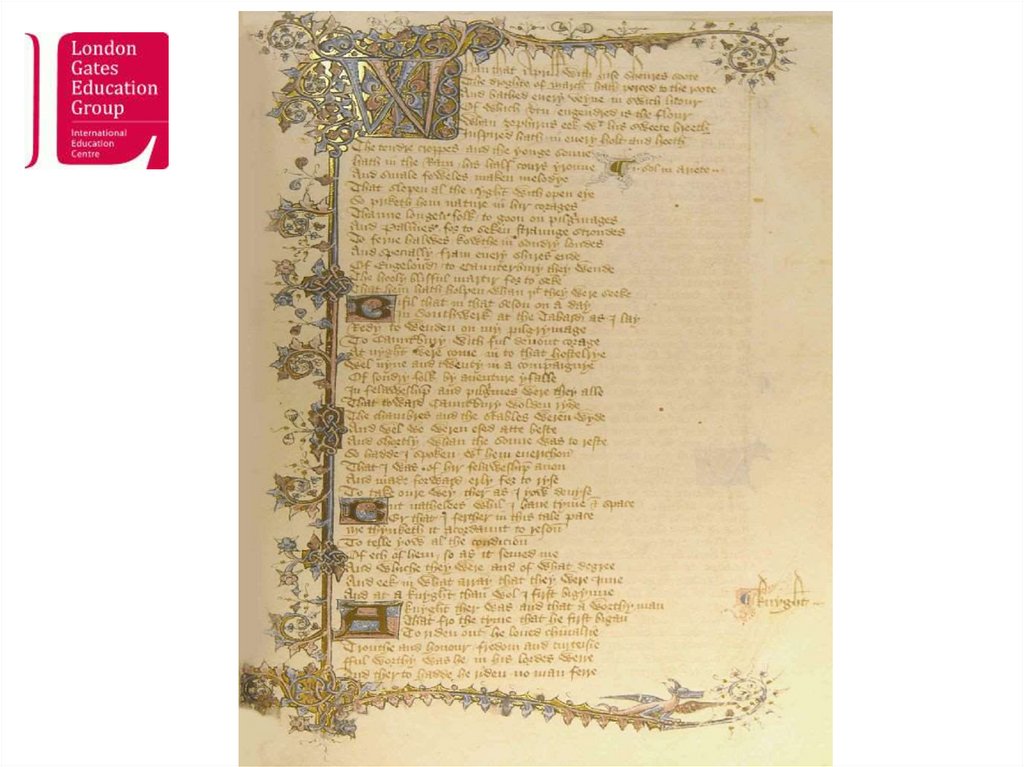 London
Gates
Education
Group
International
Education
Centre
Whan that Aprill with hise shoures soote
The droghte of march hath perced to the roote
And bathed every veyne in swich licour
Of which vertu engendred is the flour
Whan zephirus eek wt his sweete breeth
Inspired hath in every holt and heeth
The tendre croppes and the yonge sonne
hath in the Ram his half cours yronne
.i. sol in ariete
And smale foweles maken melodye
That slepen al the nyght with open eye
So priketh hem nature in hir corages
Thanne longen folk to goon on pilgrimages
And Palmeres for to seken straunge strondes
To ferne halwes kowthe in sondry londes
And specially fram every shires ende
Of Engelond to Caunterbury they wende
The hooly blisful martir for to seke
That hem hath holpen whan þt they were seeke
Bifil that in that seson on a day
In Southwerk at the Tabard as I lay
Redy to wenden on my pilgrymage
To Caunterbury with ful devout corage
At nyght were come in to that hostelrye
Wel nyne and twenty in a compaignye
Of sondry folk by aventure yfalle
In felaweshipe and pilgrimes were they alle
That toward Caunterbury wolden ryde
The chambres and the stables weren wyde
And wel we weren esed atte beste
And shortly whan the sonne was to reste
So hadde I spoken wt hem everichon
That I was of hir felaweshipe anon
And made forward erly for to ryse
To take oure wey ther as I yow devyse
But nathelees whil I have tyme & space
Er that I ferther in this tale pace
Me thynketh it acordaunt to resoun
To telle yow al the condicioun
Of ech of hem so as it semed me
And whiche they were and of what degree
And eek in what array that they were inne
And at a knyght than wol I first bigynne
A knyght ther was and that a worthy man
That fro the tyme that he first bigan
To riden out he loved chivalrie
Trouthe and honour fredom and curteisie
fful worthy was he in his lordes werre
And ther to hadde he riden no man ferre
knyght